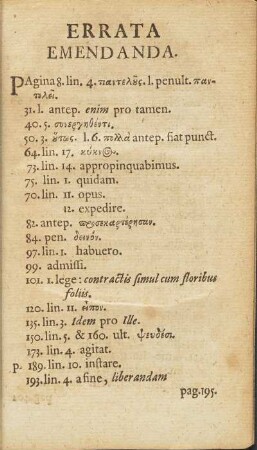 ERRATA
EMENDANDA.
PAgina 8. lin. 4. παντελῶς. l. penult. παν-
τελεῖ.
31. l. antep. enim pro tamen.
40. 5. συνεργηθέντι.
50. 3. οὕτως. l. 6. πολλὰ antep. fiat punct.
64. lin. 17.
73. lin. 14. appropinquabimus.
75. lin. 1. quidam.
70. lin. 11. opus.
12. expedire.
82. antep. προσεκαρτέρησαν.
84. pen. δεινόν.
97. lin. 1. habuero.
99. admissi.
101. 1. lege: contractis simul cum floribus
foliis.
120. lin. 11. εἶπον.
135. lin. 3. Idem pro Ille.
150. lin. 5. & 160. ult. ψευδέσι.
173. lin. 4. agitat.
p. 189. lin. 10. instare.
193. lin. 4. a fine, liberandam
pag. 195.